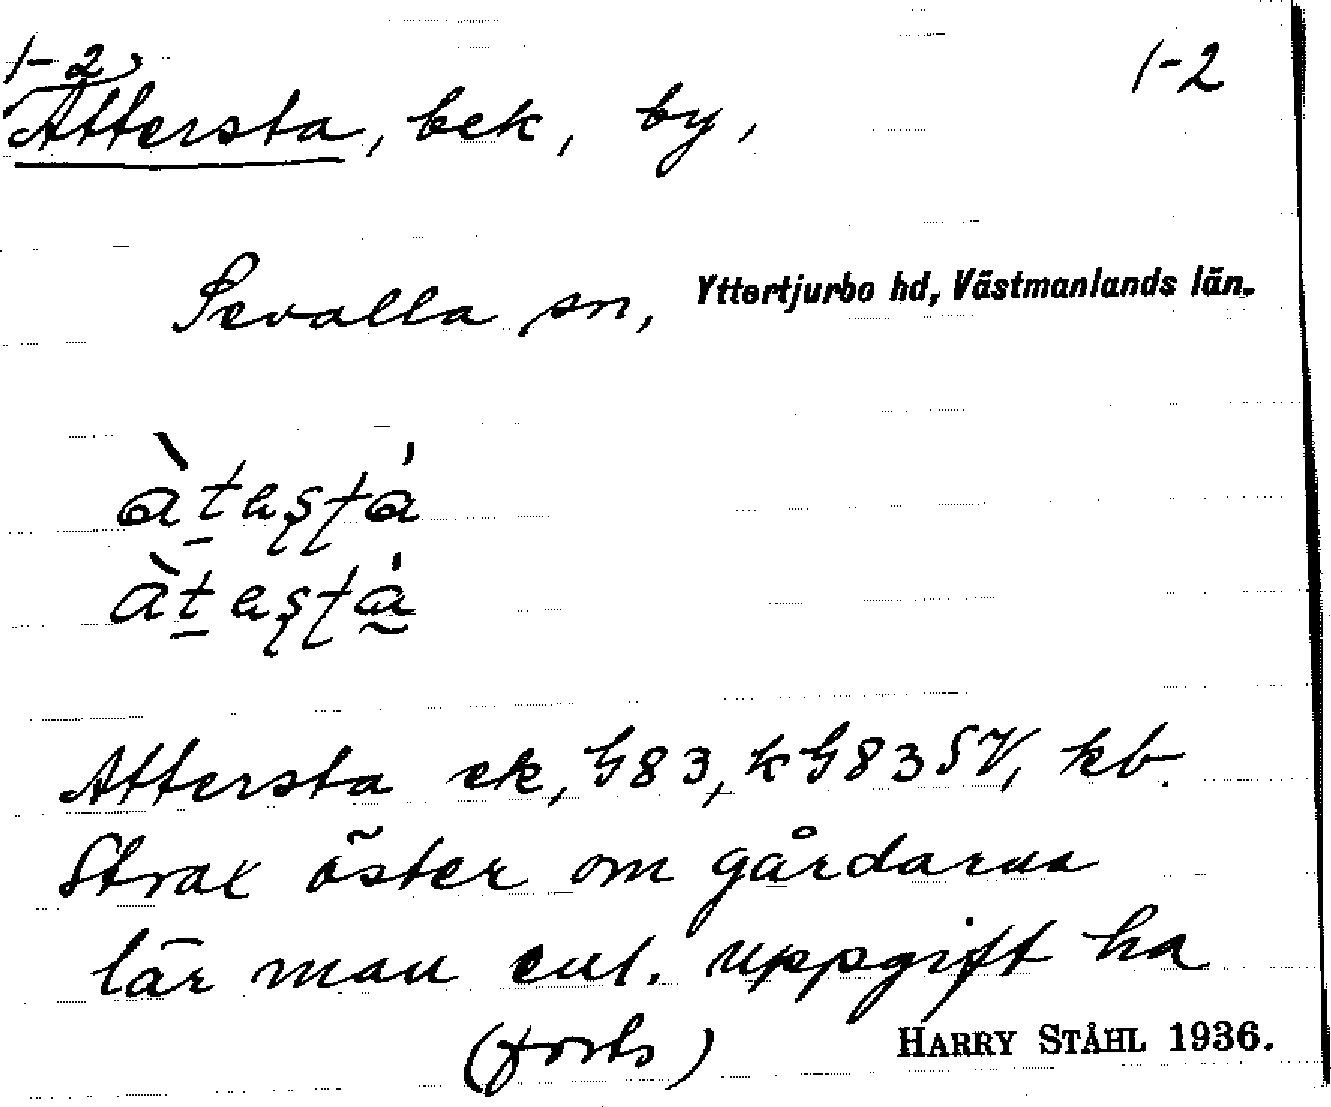 1-2 1-2
Attersta, bek, by,
Sevalla sn, Yttertjurbo hd, Västmanlands län.
Attersta ek, G83, k G83SV, kb.
Strax öster om gårdarna
lär man enl. uppgift ha
(forts)
HARRY STÅHL 1936.